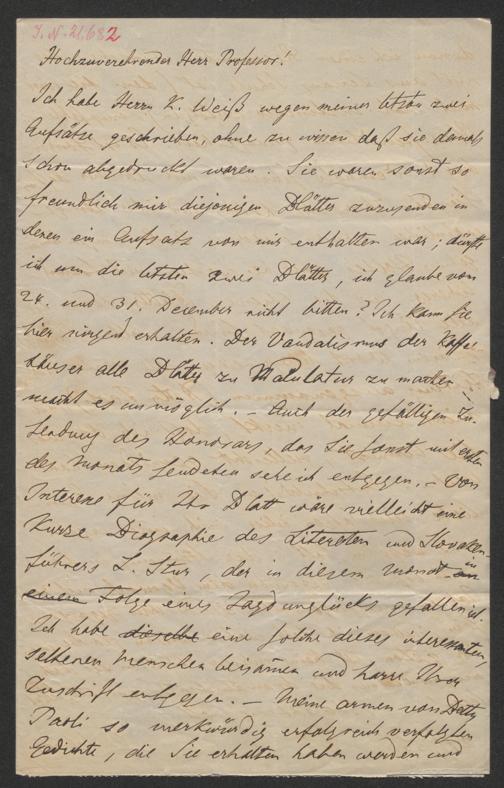 J. N. 21.682
Hochzuverehrender Herr Professor!
Ich habe Herrn K. Weiß wegen meiner letzten zwei
Aufsätze geschrieben, ohne zu wissen daß sie damals
schon abgedruckt waren. Sie waren sonst so
freundlich mir diejenigen Blätter zuzusenden in
denen ein Aufsatz von mir enthalten war; dürfte
ich um die letzten zwei Blätter, ich glaube vom
24. und 31. Dezember nicht bitten? Ich kann sie
hier nirgend erhalten. Der Vandalismus der Kaffe-
häuser alle Blätter zu Makulatur zu machen
macht es unmöglich. – Auch der gefälligen Zu-
sendung des Honorars, das Sie sonst mit ersten
des Monats sendeten sehe ich entgegen. – Von
Interesse für Ihr Blatt wäre vielleicht eine
kurze Biographie des Literaten und Slovaken-
führers L. Stur, der in diesem Monat in
einem Folge eines Jagdunglücks gefallen ist.
Ich habe dieselbe eine solche dieses interessanten,
seltenen Menschen beisamen und harre Ihrer
Zuschrift entgegen. – Meine armen von Betty
Paoli so merkwürdig erfolgreich verfolgten
Gedichte, die Sie erhalten haben werden und